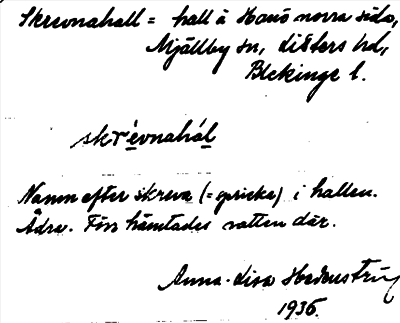 Skrevnahall = hall å Hanö norra sida,
Mjällby sn, Listers hd,
Blekinge l.
skrévnahál
Namn efter skreva (= spricka) i hallen.
Ådra. Förr hämtades vatten där.
Anna-Lisa
1936.